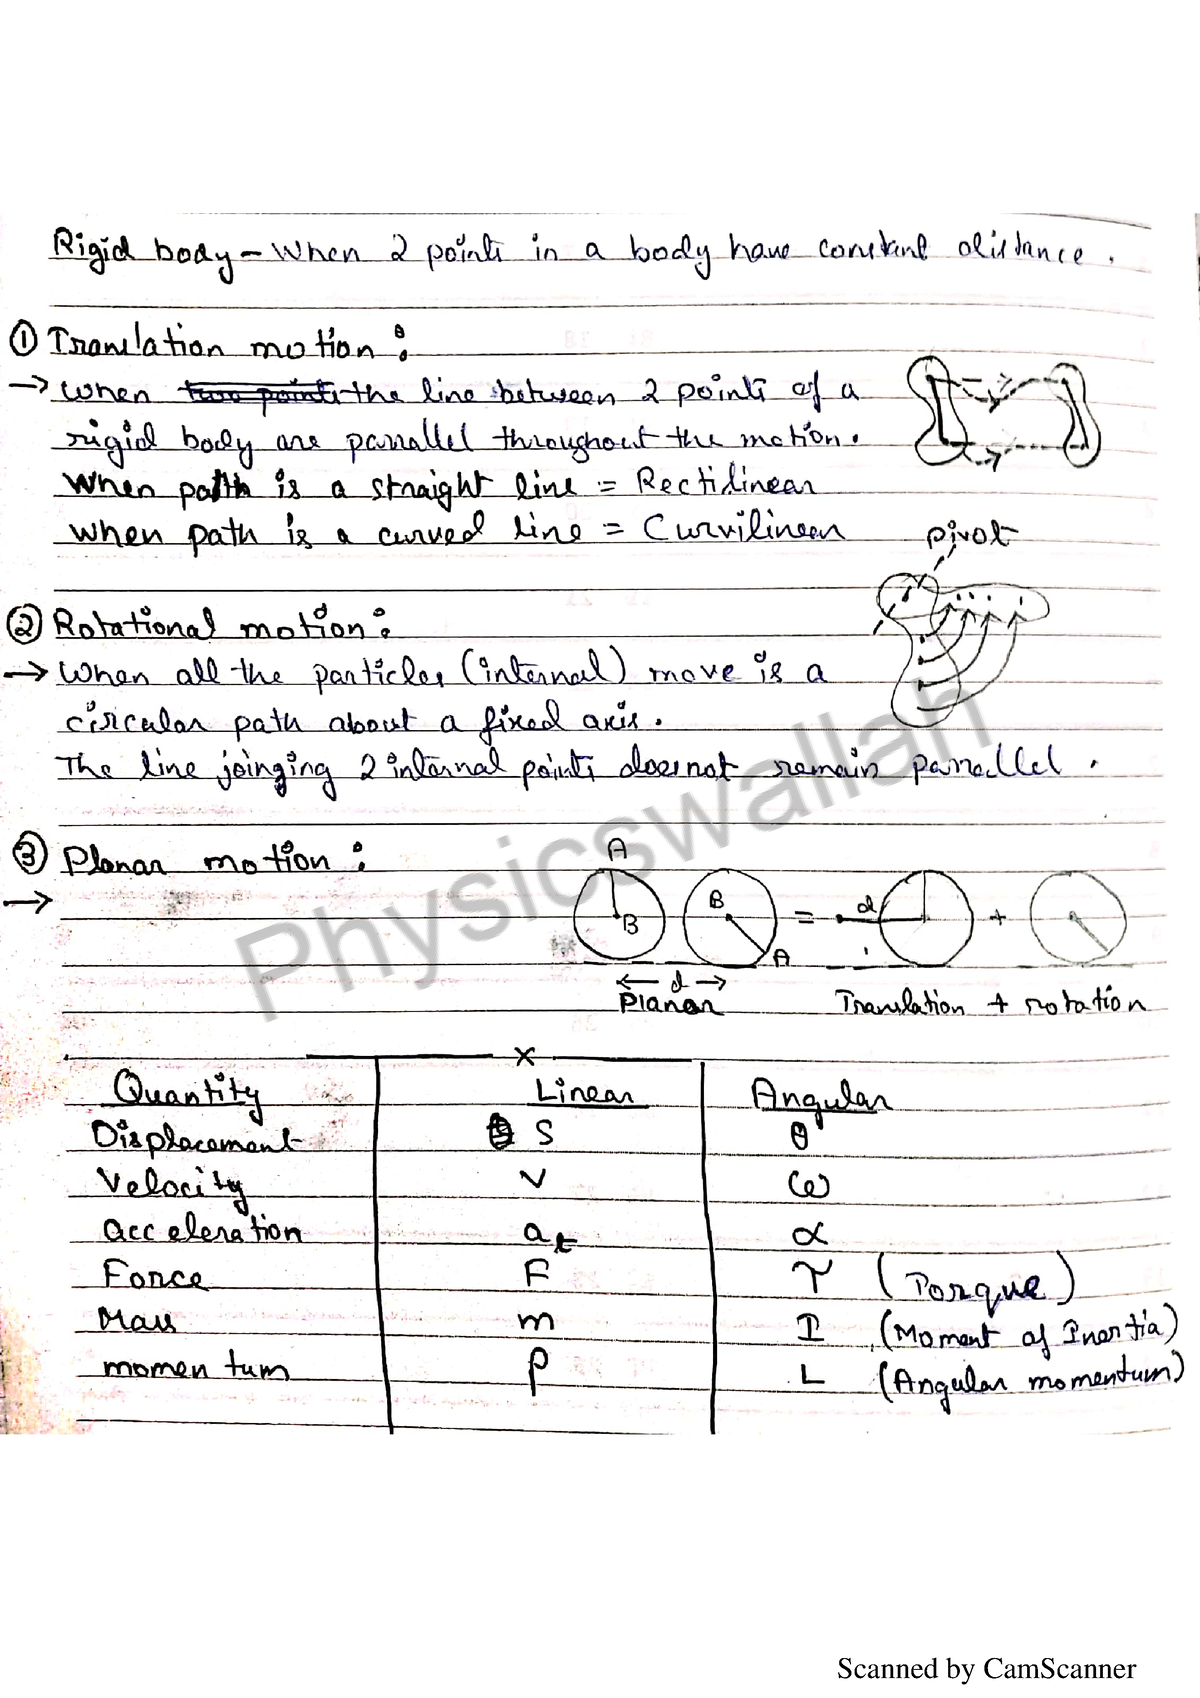 Rigid body - When 2 points in a body have constant distance.
① Translation motion:
→ When two points the line between 2 points of a
rigid body are parallel throughout the motion.
When path is a straight line = Rectilinear
When path is a curved line = Curvilinear
pivot
② Rotational motion:
→ When all the particles (internal) move is a
circular path about a fixed axis.
The line joinging 2 internal points does not remain parallel.
③ Planar motion:
→
A
B
B
A
= d +
← d →
Planar
Translation + rotation
x
Quantity Linear Angular
Displacement S θ
Velocity v ω
acceleration at α
Force F τ (Torque)
Mass m I (Moment of Inertia)
momentum p L (Angular momentum)
Physicswallah
Scanned by CamScanner